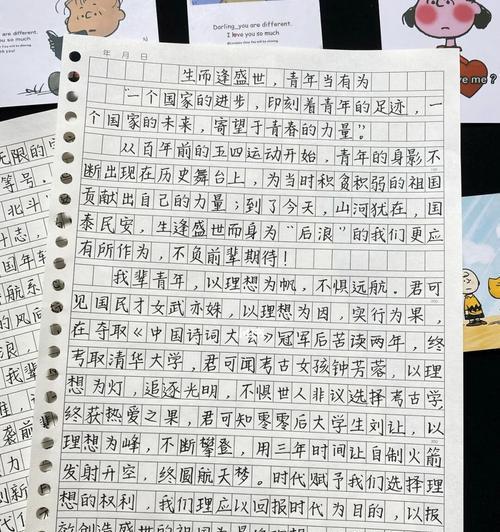 Darling, you are different.
I love you so much
you are different.
ove me?
年 月 日
生而逢盛世，青年当有为
“一个国家的进步，印刻着青年的足迹，一
个国家的未来，寄望于青春的力量？
从百年前的五四运动开始，青年的身影不
断出现在历史舞台上，为当时积贫积弱的祖国
贡献出自己的力量；到了今天，山河犹在，国
泰民安，生逢盛世而身为“后浪”的我们更应
有所作为，不负前辈期待！
我辈青年，以理想为帆，不惧远航。君可
见国民才女武亦姝，以理想为因，实行为果，
在夺取《中国诗词大会》冠军后苦读两年，终
考取清华大学，君可闻考古女孩钟芳蓉，以理
想为灯，追逐光明，不惧世人非议选择考古学，
终获热爱之果，君可知零零后大学生刘让，以
理想为峰，不断攀登，用三年时间让自制火箭
发射升空，终圆航天梦。时代赋予我们选择理
想的权利，我们理应以回报时代为目的，以报
无限的
等号，
北斗
斗志，
国年车
航系
的风向
浪
我辈
袭前
力
创新